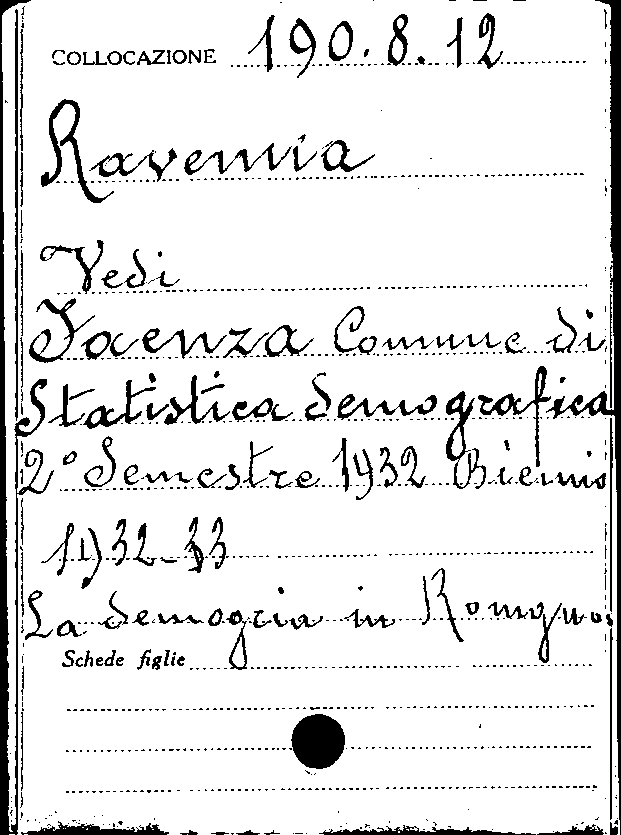 COLLOCAZIONE 190.8.12
Ravenna
Vedi
Faenza Comune di
Statistica demografica
2° Semestre 1932 Biennio
1932-33
La demogria in Romgna
Schede figlie